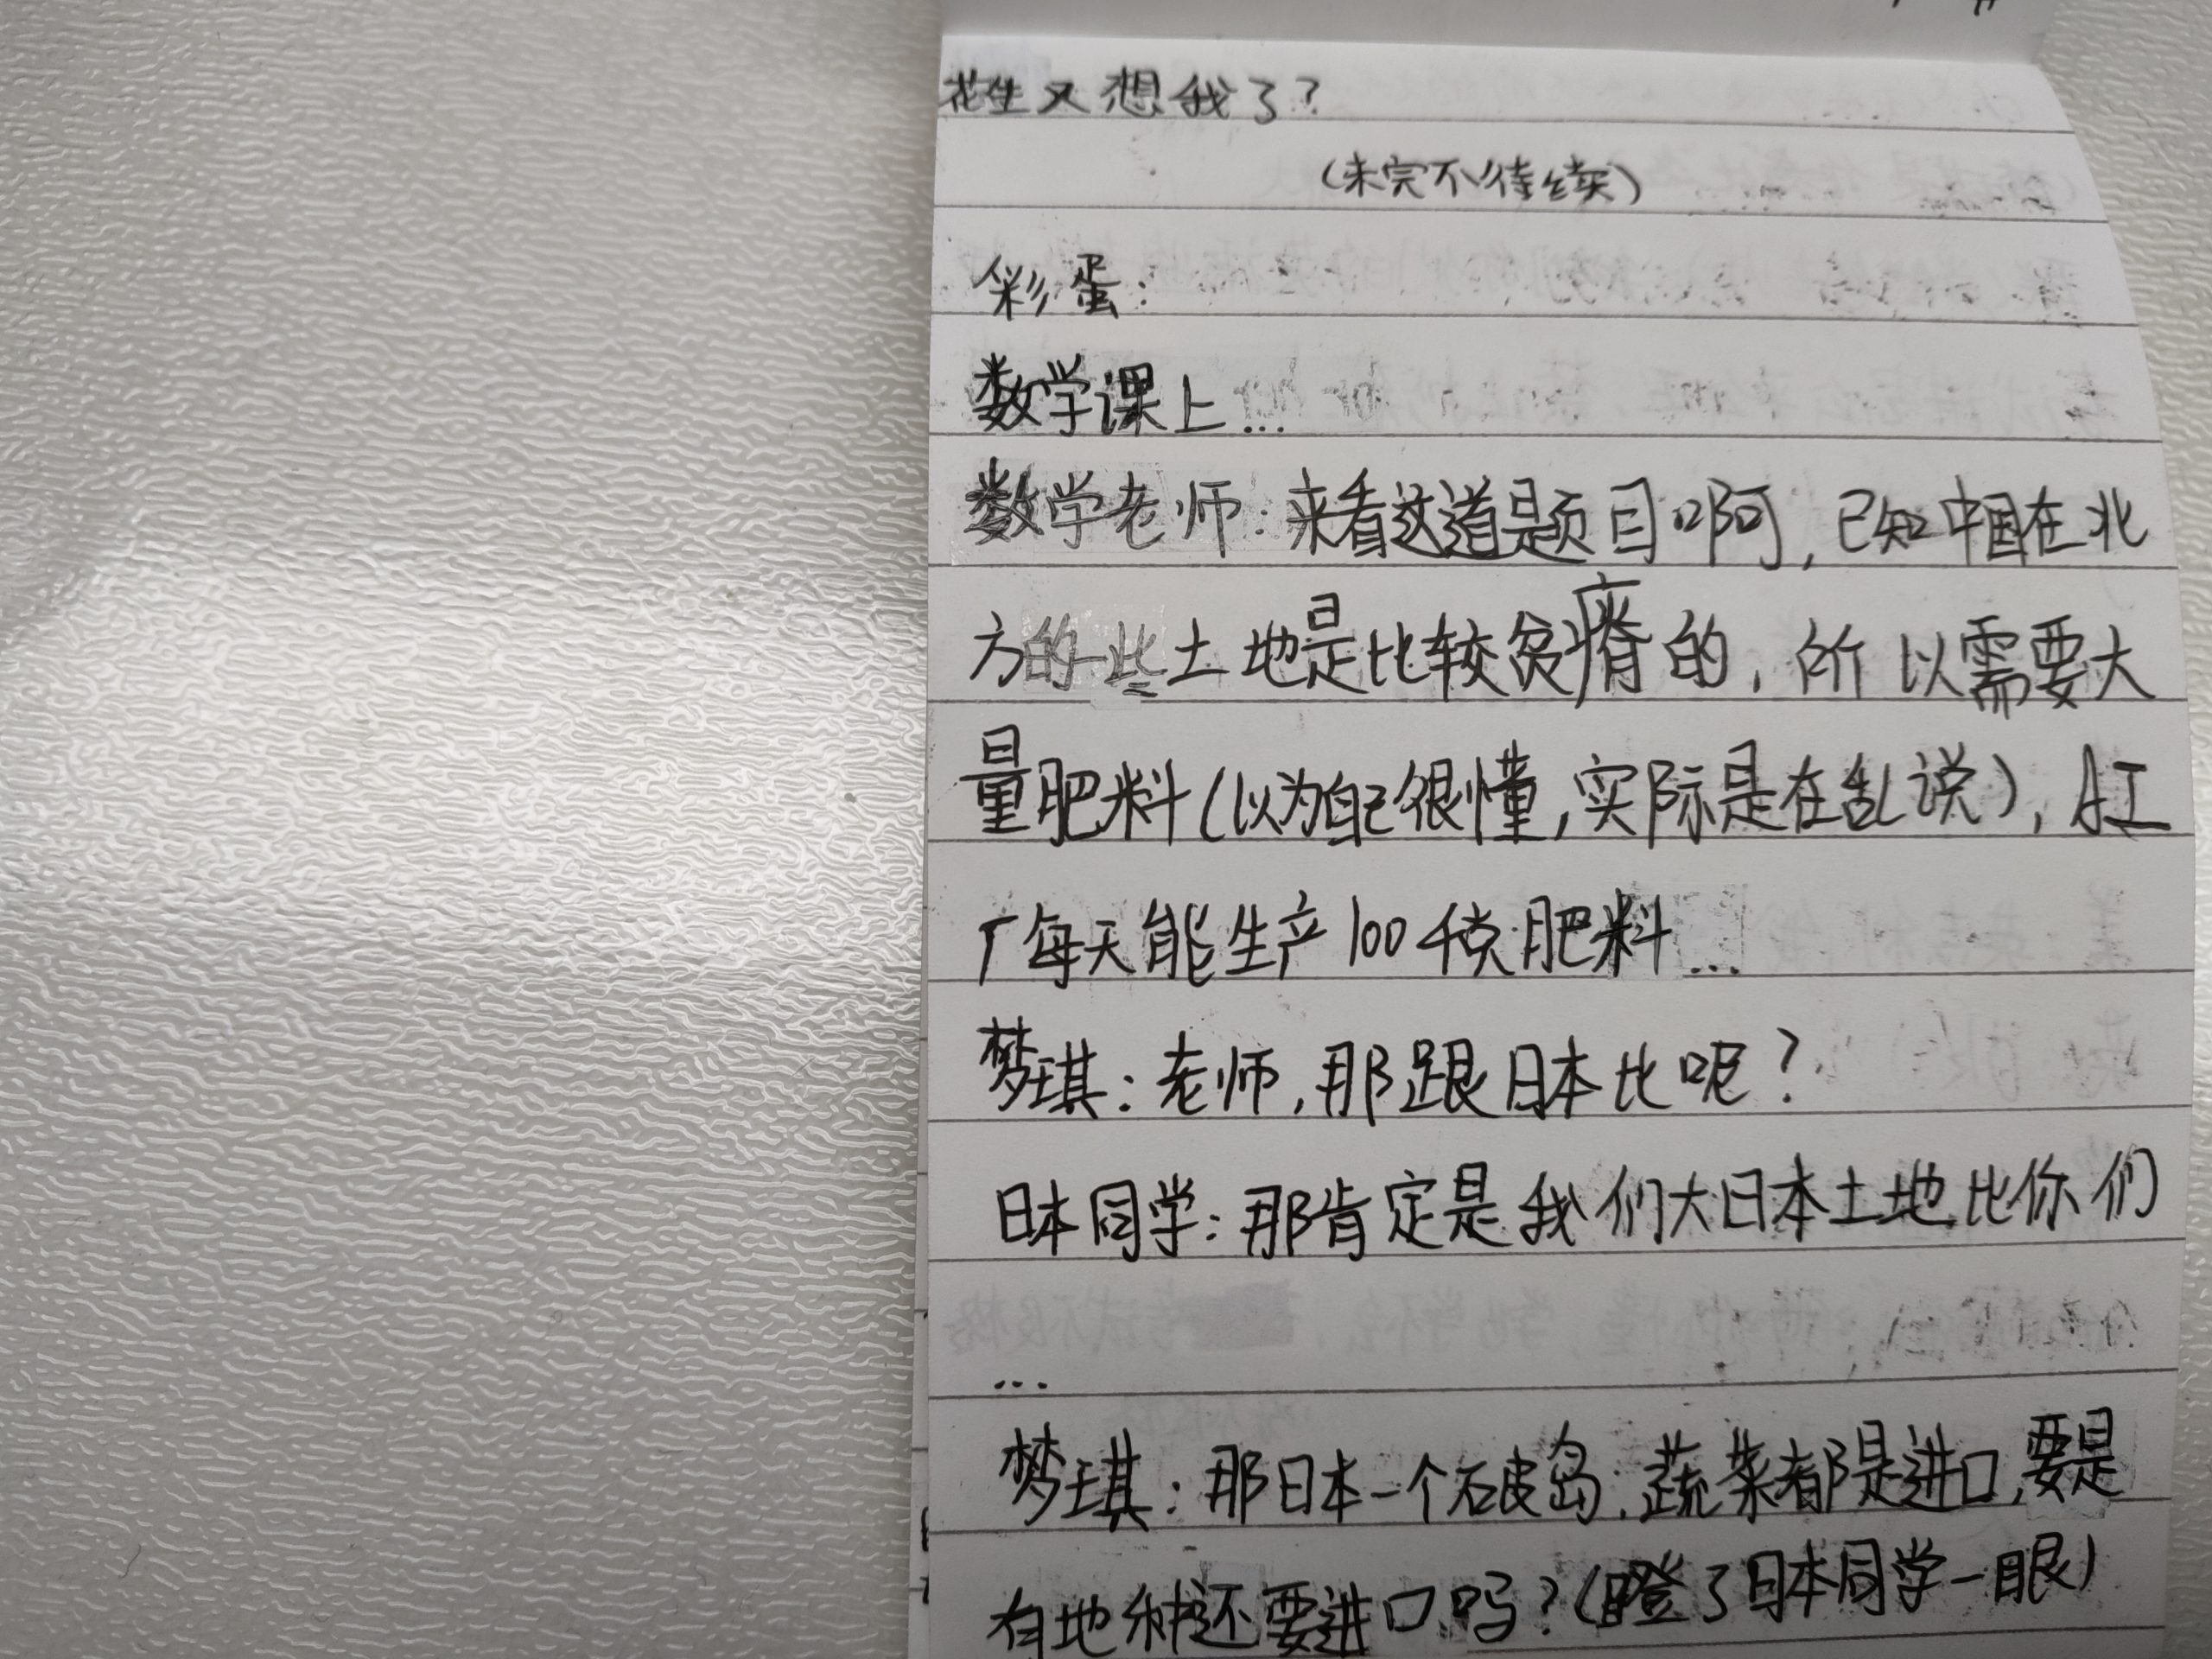 花生又想我了？
（未完不待续）
彩蛋：
数学课上…
数学老师：来看这道题目啊，已知中国在北
方的一些土地是比较贫瘠的，所以需要大
量肥料（以为自己很懂，实际是在乱说），A工
厂每天能生产100千克肥料…
梦琪：老师，那跟日本比呢？
日本同学：那肯定是我们大日本土地比你们
…
梦琪：那日本一个破岛，蔬菜都是进口，要是
有地种还要进口吗？（瞪了日本同学一眼）